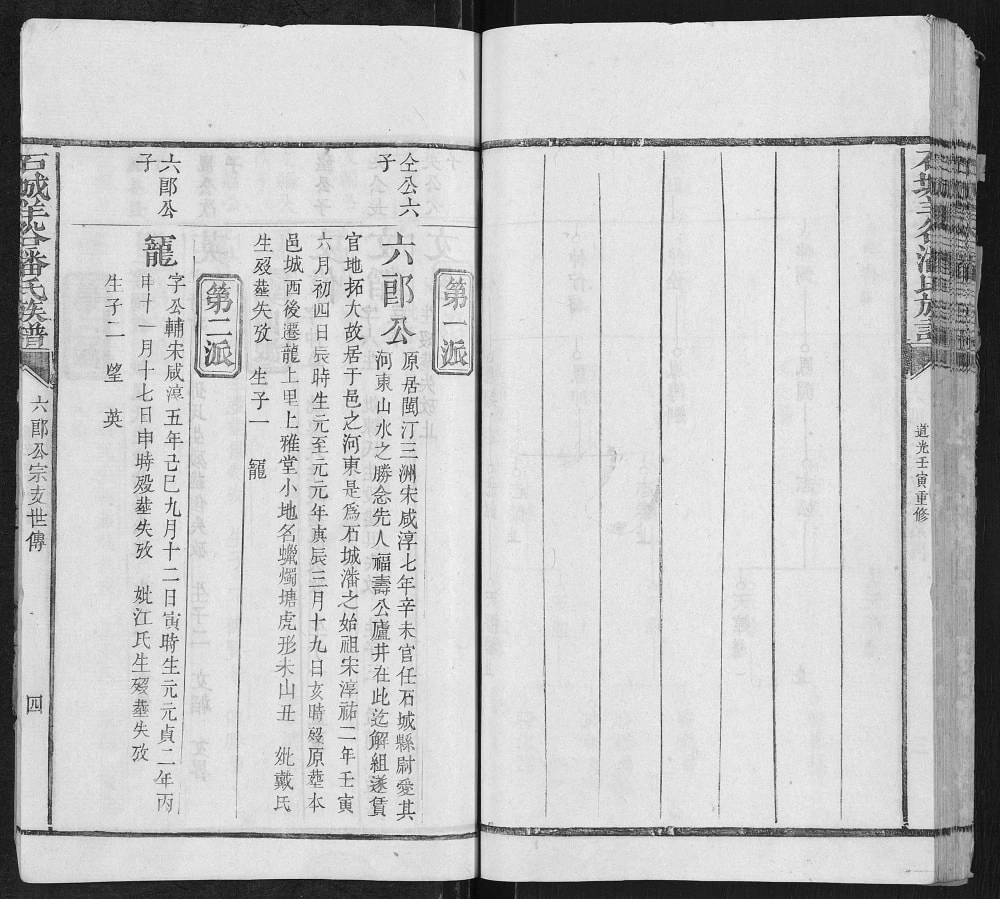 道光壬寅重修
第一派
仝公六子
六郎公
原居閩汀三洲宋咸淳七年辛未官任石城縣尉愛其
河東山水之勝念先人福壽公廬井在此迄解組遂賃
官地拓大故居于邑之河東是爲石城潘之始祖宋淳祐二年壬寅
六月初四日辰時生元至元元年庚辰三月十九日亥時殁原塟本
邑城西後遷龍上里上雅堂小地名蠟燭塘虎形未山丑 妣戴氏
生殁塟失攷 生子一 寵
第二派
六郎公子
寵
字公輔宋咸淳五年己巳九月十二日寅時生元元貞二年丙
申十一月十七日申時殁塟失攷 妣江氏生殁塟失攷
生子二 望 英
石城羊角潘氏族譜
六郎公宗支世傳
四